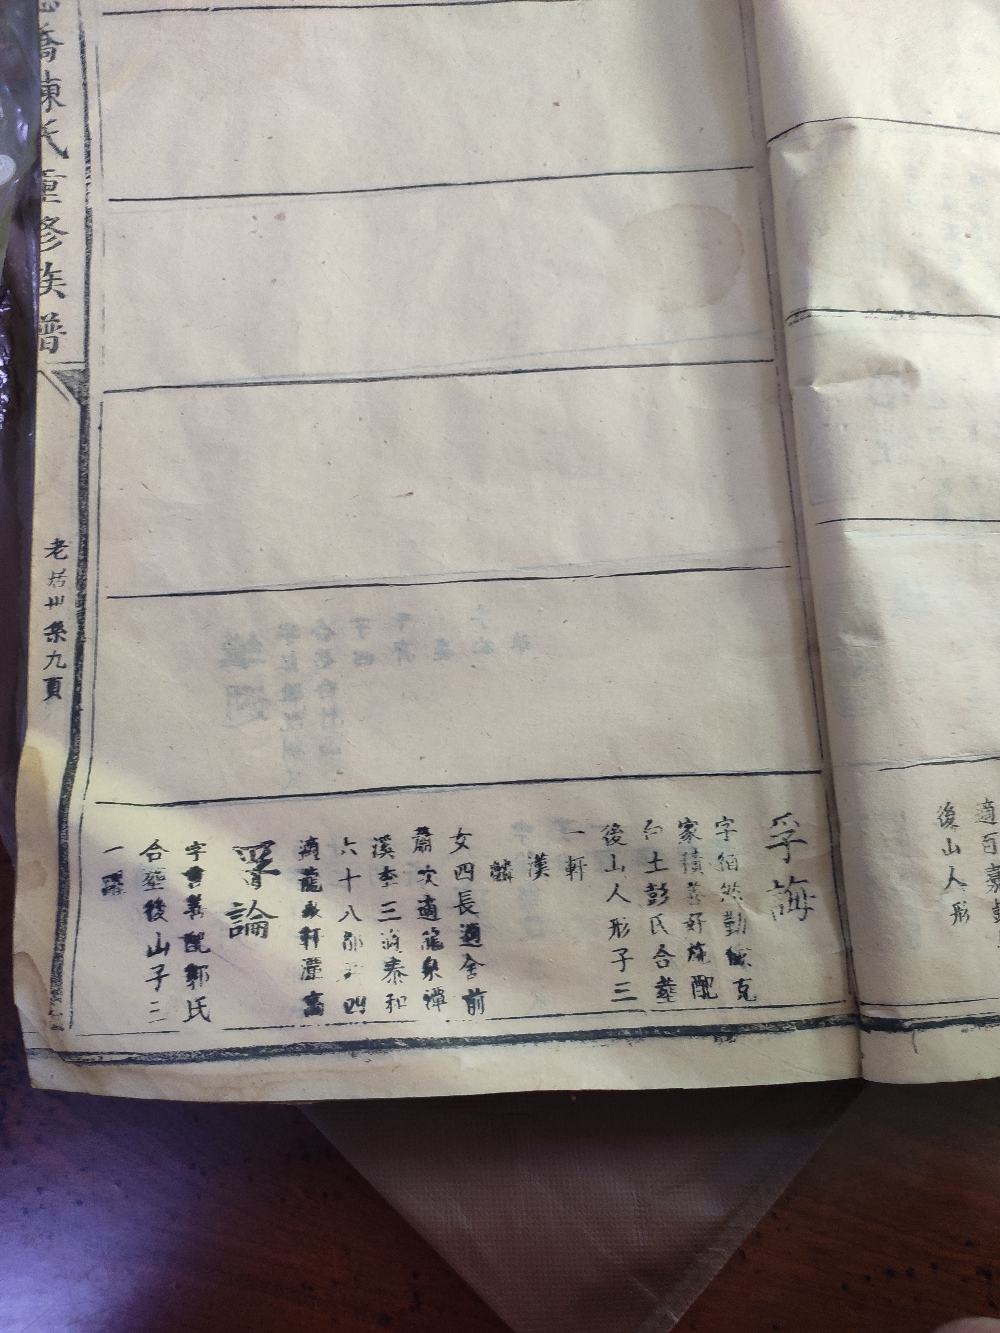 適百嘉彭
後山人形
孚誨
字伯然勤儉克
家積善好施配
白土彭氏合葬
後山人形子三
一軒
漢
麟
女四長適舍前
蕭次適龍泉潭
溪李三適泰和
六十八都尹四
適龍泉軒灋高
論
字書善配郭氏
合塟後山子三
一躍
橋陳氏重修族譜
老居卅柒九頁